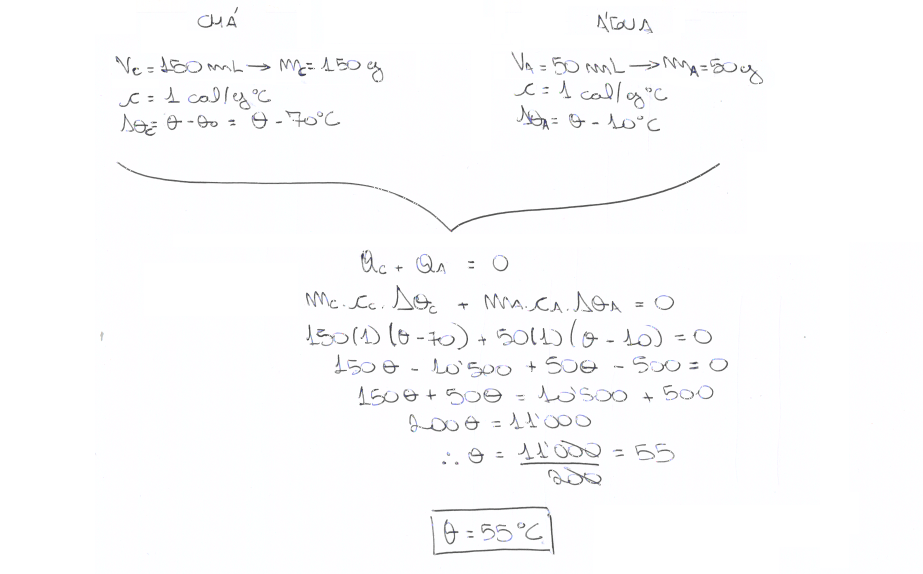 CHÁ
Vc = 150 mL → mc = 150 g
c = 1 cal/g°C
Δθc = θ - θ0 = θ - 70°C
ÁGUA
VA = 50 mL → mA = 50g
c = 1 cal/g°C
ΔθA = θ - 10°C
Qc + QA = 0
mc.cc.Δθc + mA.cA.ΔθA = 0
150(1)(θ-70) + 50(1)(θ - 10) = 0
150θ - 10'500 + 50θ - 500 = 0
150θ + 50θ = 10'500 + 500
200θ = 11'000
∴ θ = 11'000/200 = 55
θ = 55°C